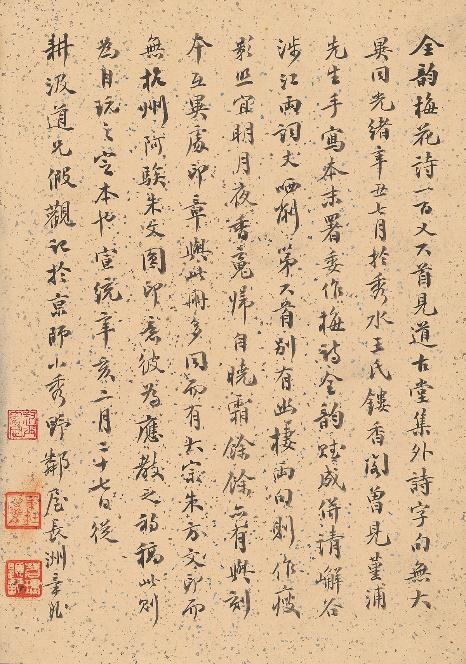 全韵梅花詩一百又六首見道古堂集外詩字句無大
異同光緒辛丑七月於秀水王氏鏤香閣曾見堇浦
先生手寫本末署委作梅詩全韵賦成併請嶰谷
涉江兩詞丈哂削第六首別有此棲兩句則作瘦
影照宜明月夜香魂歸自曉霜餘餘亦有與刻
本互異處印章與此冊多同而有大宗朱方文印而
無杭州阿駿朱文圓印意彼為應教之初稿此則
為自玩之定本也宣統辛亥二月二十七日從
耕汲道兄假觀記於京師小秀野鄰屋長洲章